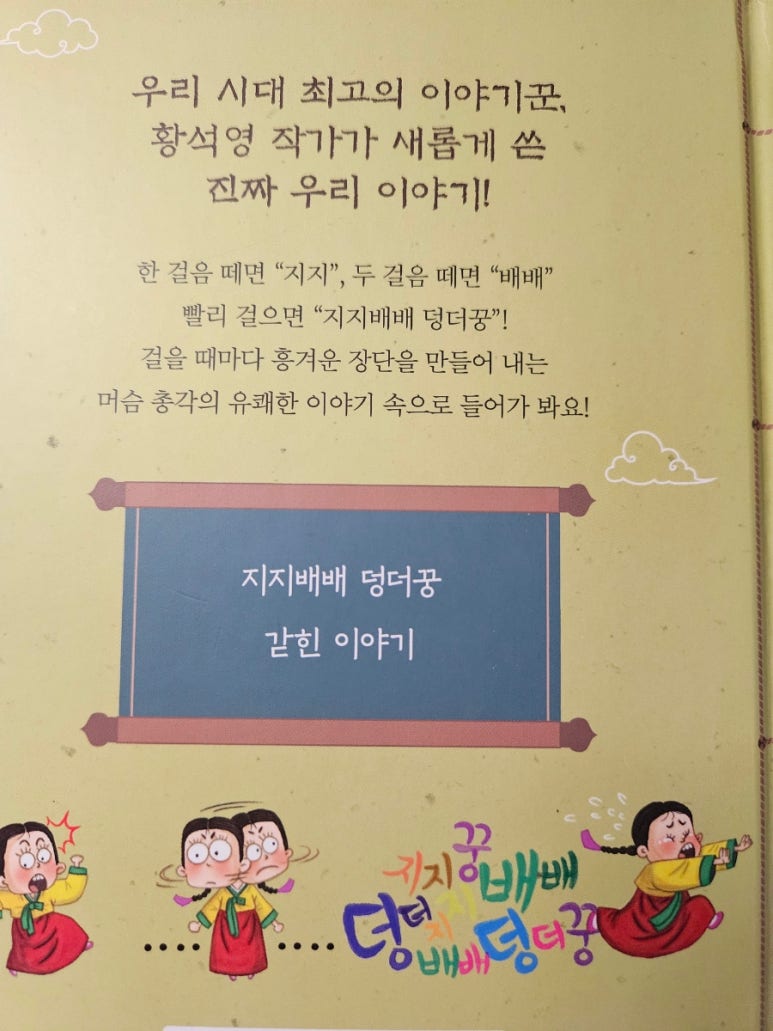 우리 시대 최고의 이야기꾼,
황석영 작가가 새롭게 쓴
진짜 우리 이야기!
한 걸음 떼면 “지지”, 두 걸음 떼면 “배배”
빨리 걸으면 “지지배배 덩더꿍”!
걸을 때마다 흥겨운 장단을 만들어 내는
머슴 총각의 유쾌한 이야기 속으로 들어가 봐요!
지지배배 덩더꿍
갇힌 이야기
지지꿍배배
덩더지지덩더꿍
배배